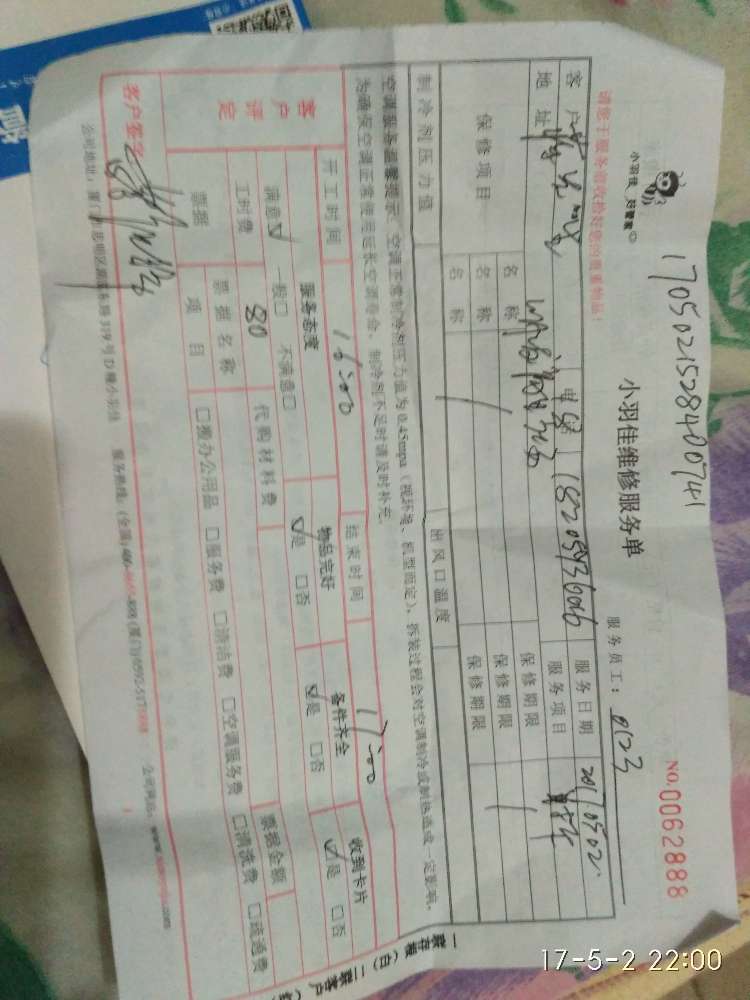 170502152840741
小羽佳 好管家
小羽佳维修服务单
服务员工： 0123
NO.0062888
请您于服务前收捡好您的贵重物品！
客户 电话 18205936026 服务日期 20170502
地址 服务项目
保修项目 名称 保修期限
名称 保修期限
名称 保修期限
制冷剂压力值 出风口温度
空调服务温馨提示：空调正常制冷剂压力值为0.45mpa（视环境、机型而定），拆装过程会对空调制冷或制热造成一定影响，
为确保空调正常使用延长空调寿命，制冷剂不足时请及时补充。
开工时间 16:00 结束时间 17:00
客户评定 服务态度 物品完好 备件齐全 收到卡片
满意☑ 一般☐ 不满意☐ ☑是 ☐否 ☑是 ☐否 ☑是 ☐否
工时费 80 代购材料费 票据金额
票据 票据名称
项目 ☐搬办公用品 ☐服务费 ☐清洁费 ☐空调服务费 ☐清洗费 ☐疏通费
客户签字
公司地址：厦门市思明区 319号 小羽佳 服务热线：(全国)400- (厦门)0592-517 公司网站：www. .com
一联存根（白）二联客户（
17-5-2 22:00